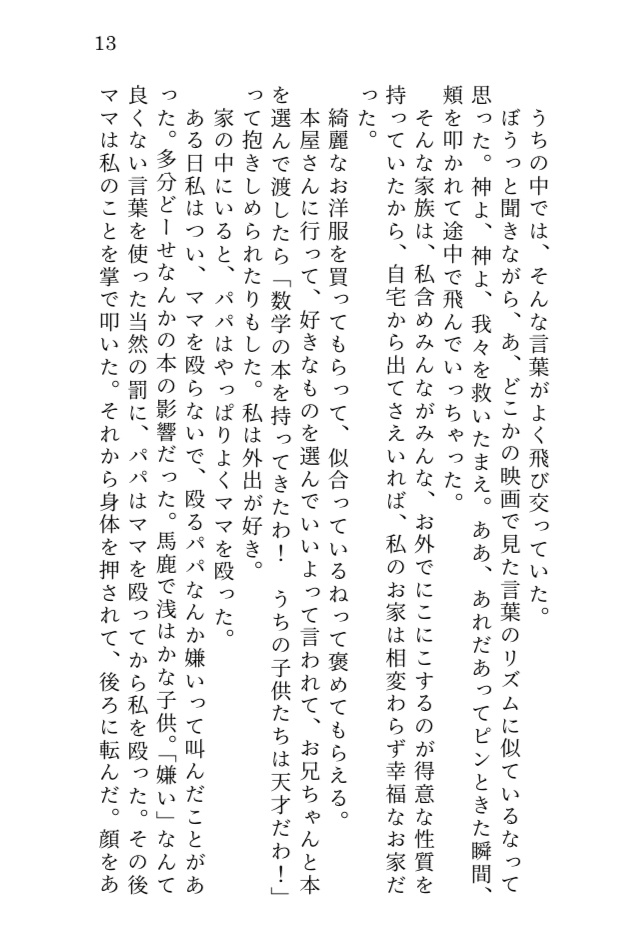 13
うちの中では、そんな言葉がよく飛び交っていた。
ぼうっと聞きながら、あ、どこかの映画で見た言葉のリズムに似ているなって
思った。神よ、神よ、我々を救いたまえ。ああ、あれだあってピンときた瞬間、
頬を叩かれて途中で飛んでいっちゃった。
そんな家族は、私含めみんながみんな、お外でにこにこするのが得意な性質を
持っていたから、自宅から出てさえいれば、私のお家は相変わらず幸福なお家だ
った。
綺麗なお洋服を買ってもらって、似合っているねって褒めてもらえる。
本屋さんに行って、好きなものを選んでいいよって言われて、お兄ちゃんと本
を選んで渡したら「数学の本を持ってきたわ！　うちの子供たちは天才だわ！」
って抱きしめられたりもした。私は外出が好き。
家の中にいると、パパはやっぱりよくママを殴った。
ある日私はつい、ママを殴らないで、殴るパパなんか嫌いって叫んだことがあ
った。多分どーせなんかの本の影響だった。馬鹿で浅はかな子供。「嫌い」なんて
良くない言葉を使った当然の罰に、パパはママを殴ってから私を殴った。その後
ママは私のことを掌で叩いた。それから身体を押されて、後ろに転んだ。顔をあ